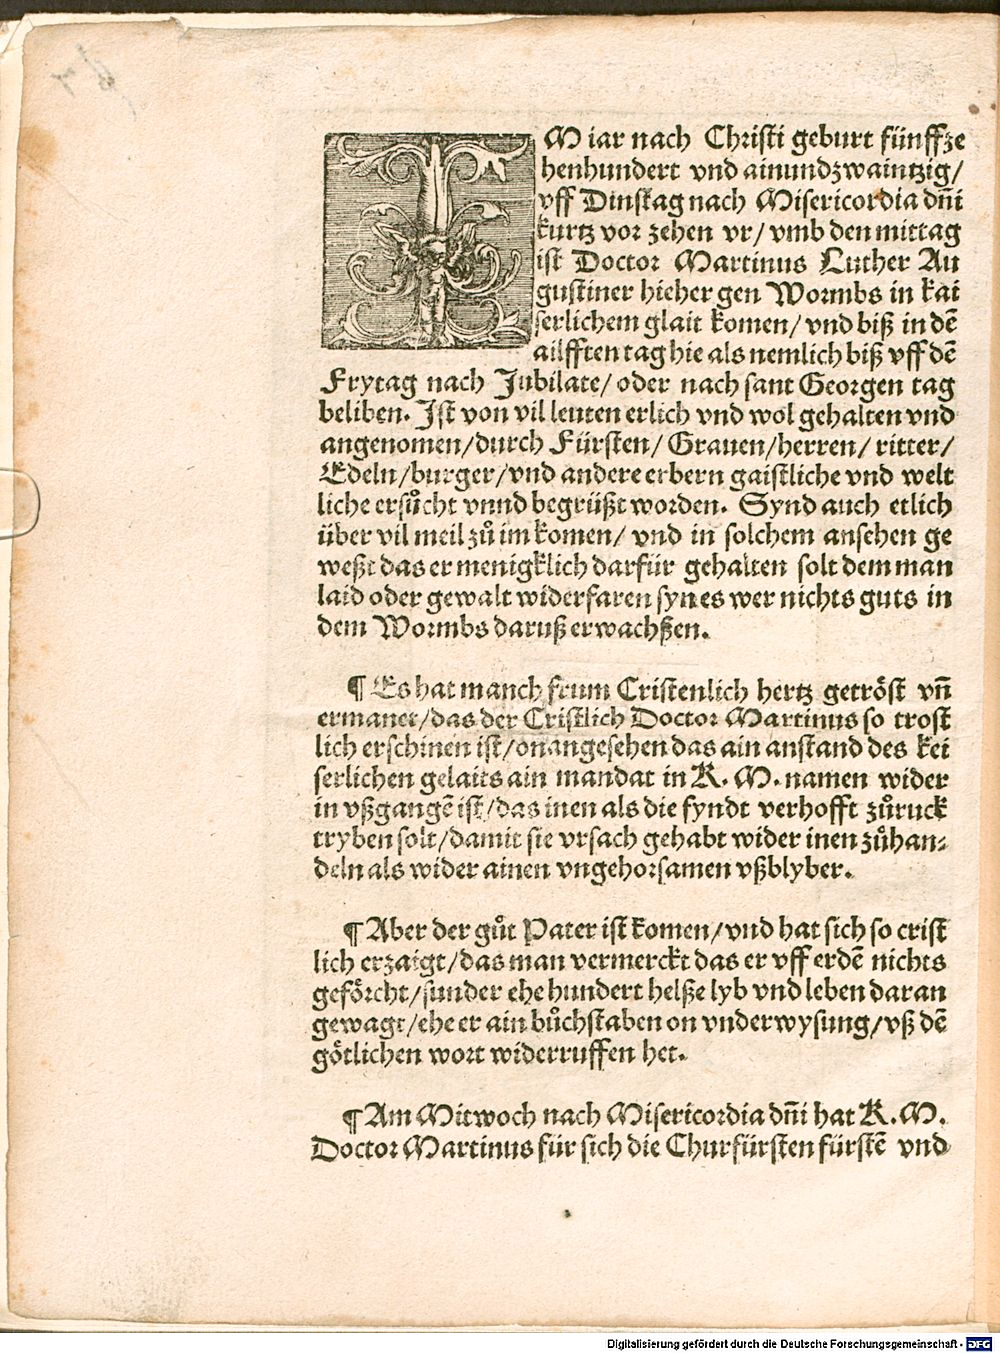 IM iar nach Christi geburt fünffze
henhundert vnd ainundzwaintzig/
vff Dinstag nach Misericordia dn̄i
kurtz vor zehen vr/ vmb den mittag
ist Doctor Martinus Luther Au
gustiner hieher gen Wormbs in kai
serlichem glait komen/ vnd biß in dē
ailfften tag hie als nemlich biß vff dē
Frytag nach Jubilate/ oder nach sant Georgen tag
beliben. Ist von vil leuten erlich vnd wol gehalten vnd
angenomen/durch Fürsten/ Grauen/herren/ ritter/
Edeln/burger/vnd andere erbern gaistliche vnd welt
liche ersůcht vnnd begrüßt worden. Synd auch etlich
über vil meil zů im komen/ vnd in solchem ansehen ge
weßt das er menigklich darfür gehalten solt dem man
laid oder gewalt widerfaren syn es wer nichts guts in
dem Wormbs daruß erwachßen.
¶ Es hat manch frum Cristenlich hertz getröst vn̄
ermanet/das der Cristlich Doctor Martinus so trost
lich erschinen ist/onangesehen das ain anstand des kei
serlichen gelaits ain mandat in K. M. namen wider
in vßgangē ist/das inen als die fyndt verhofft zůruck
tryben solt/damit sie vrsach gehabt wider inen zůhan⸗
deln als wider ainen vngehorsamen vßblyber.
¶ Aber der gůt Pater ist komen/vnd hat sich so crist
lich erzaigt/das man vermerckt das er vff erdē nichts
geförcht/sunder ehe hundert helße lyb vnd leben daran
gewagt/ehe er ain bůchstaben on vnderwysung/vß dē
götlichen wort widerruffen het.
¶ Am Mitwoch nach Misericordia dn̄i hat K. M.
Doctor Martinus für sich die Churfürsten fürstē vnd
Digitalisierung gefördert durch die Deutsche Forschungsgemeinschaft - DFG